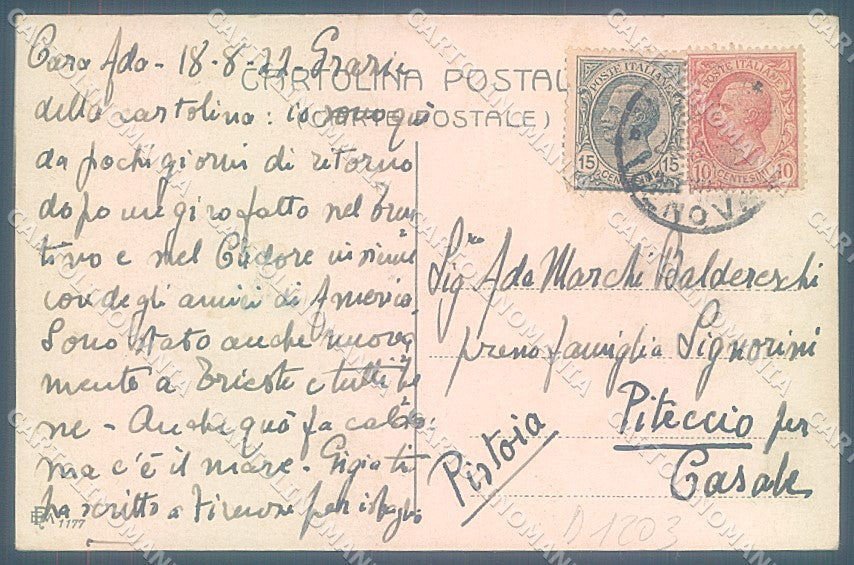 Cara Ada - 18-8-22 - Grazie
della cartolina: io sono qui
da pochi giorni di ritorno
dopo un giro fatto nel Tren-
tino e nel Cadore insieme
con degli amici di America.
Sono stato anche nuova-
mente a Trieste e tutti be-
ne - Anche quò fa caldo
ma c'è il mare - Gigia ti
ha scritto a Firenze per isbaglio
CARTOLINA POSTAL
(CARTE POSTALE)
POSTE ITALIANE
15 15
CENTESIMI
POSTE ITALIANE
10 10
CENTESIMI
NOV
Sig.ra Ada Marchi Baldereschi
presso famiglia Signorini
Piteccio per
Casale
Pistoia
1177
D 1203
CARTOLINOMANIA